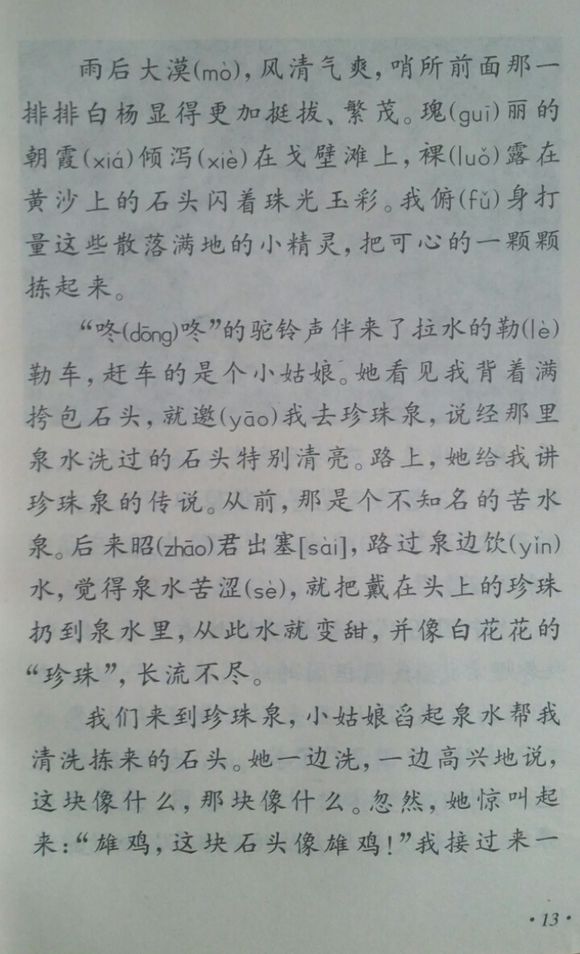 雨后大漠(mò)，风清气爽，哨所前面那一
排排白杨显得更加挺拔、繁茂。瑰(guī)丽的
朝霞(xiá)倾泻(xiè)在戈壁滩上，裸(luǒ)露在
黄沙上的石头闪着珠光玉彩。我俯(fǔ)身打
量这些散落满地的小精灵，把可心的一颗颗
拣起来。
“咚(dōng)咚”的驼铃声伴来了拉水的勒(lè)
勒车，赶车的是个小姑娘。她看见我背着满
挎包石头，就邀(yāo)我去珍珠泉，说经那里
泉水洗过的石头特别清亮。路上，她给我讲
珍珠泉的传说。从前，那是个不知名的苦水
泉。后来昭(zhāo)君出塞[sài]，路过泉边饮(yǐn)
水，觉得泉水苦涩(sè)，就把戴在头上的珍珠
扔到泉水里，从此水就变甜，并像白花花的
“珍珠”，长流不尽。
我们来到珍珠泉，小姑娘舀起泉水帮我
清洗拣来的石头。她一边洗，一边高兴地说，
这块像什么，那块像什么。忽然，她惊叫起
来：“雄鸡，这块石头像雄鸡！”我接过来一
·13·